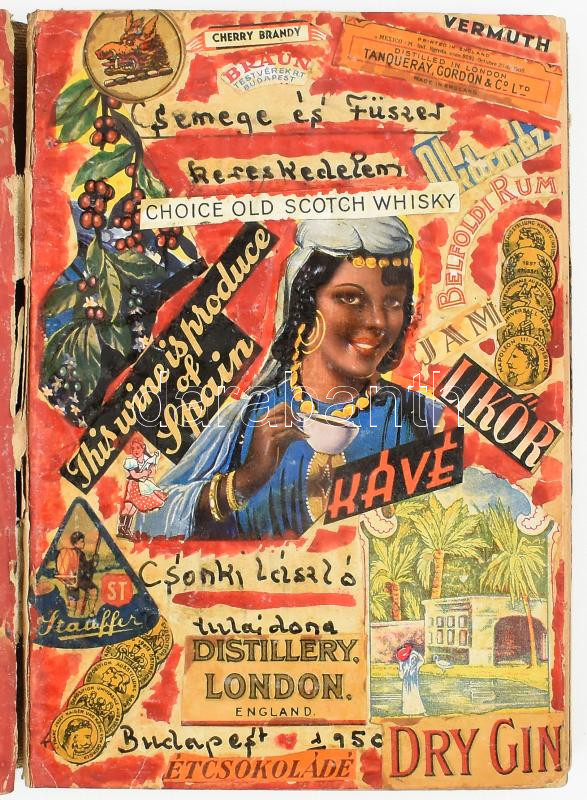 CHERRY BRANDY
BRAUN
TESTVÉREK RT
BUDAPEST
VERMUTH
PRINTED IN ENGLAND
DISTILLED IN LONDON
TANQUERAY, GORDON & Co LTD
MADE IN ENGLAND
Csemege és Fűszer
kereskedelem
CHOICE OLD SCOTCH WHISKY
BELFÖLDI RUM
JAM
This wine is produce
of
Spain
LIKŐR
KÁVÉ
NAPOLEON III.
1897
darabanth
ST
Stauffer
Csonki László
tulajdona
DISTILLERY.
LONDON.
ENGLAND.
Budapest 1950
ÉTCSOKOLÁDÉ
DRY GIN